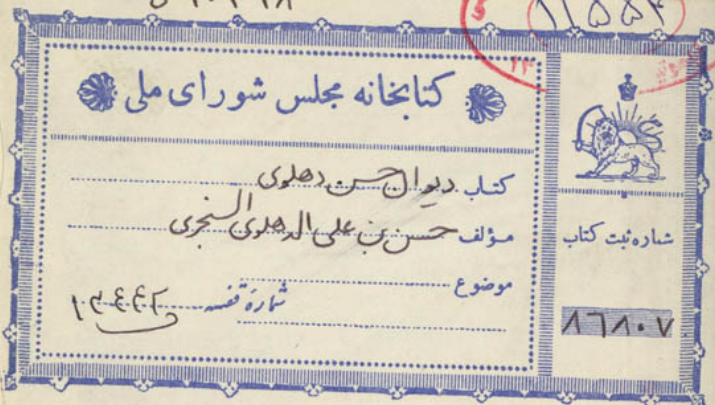 ۱۱۵۵۴
۱۳
کتابخانه مجلس شورای ملی
کتاب دیوان حسن دهلوی
مؤلف حسن بن علی الدهلوی السنجری
موضوع
شمارهٔ قفسه
شماره ثبت کتاب
۸۶۸۰۷